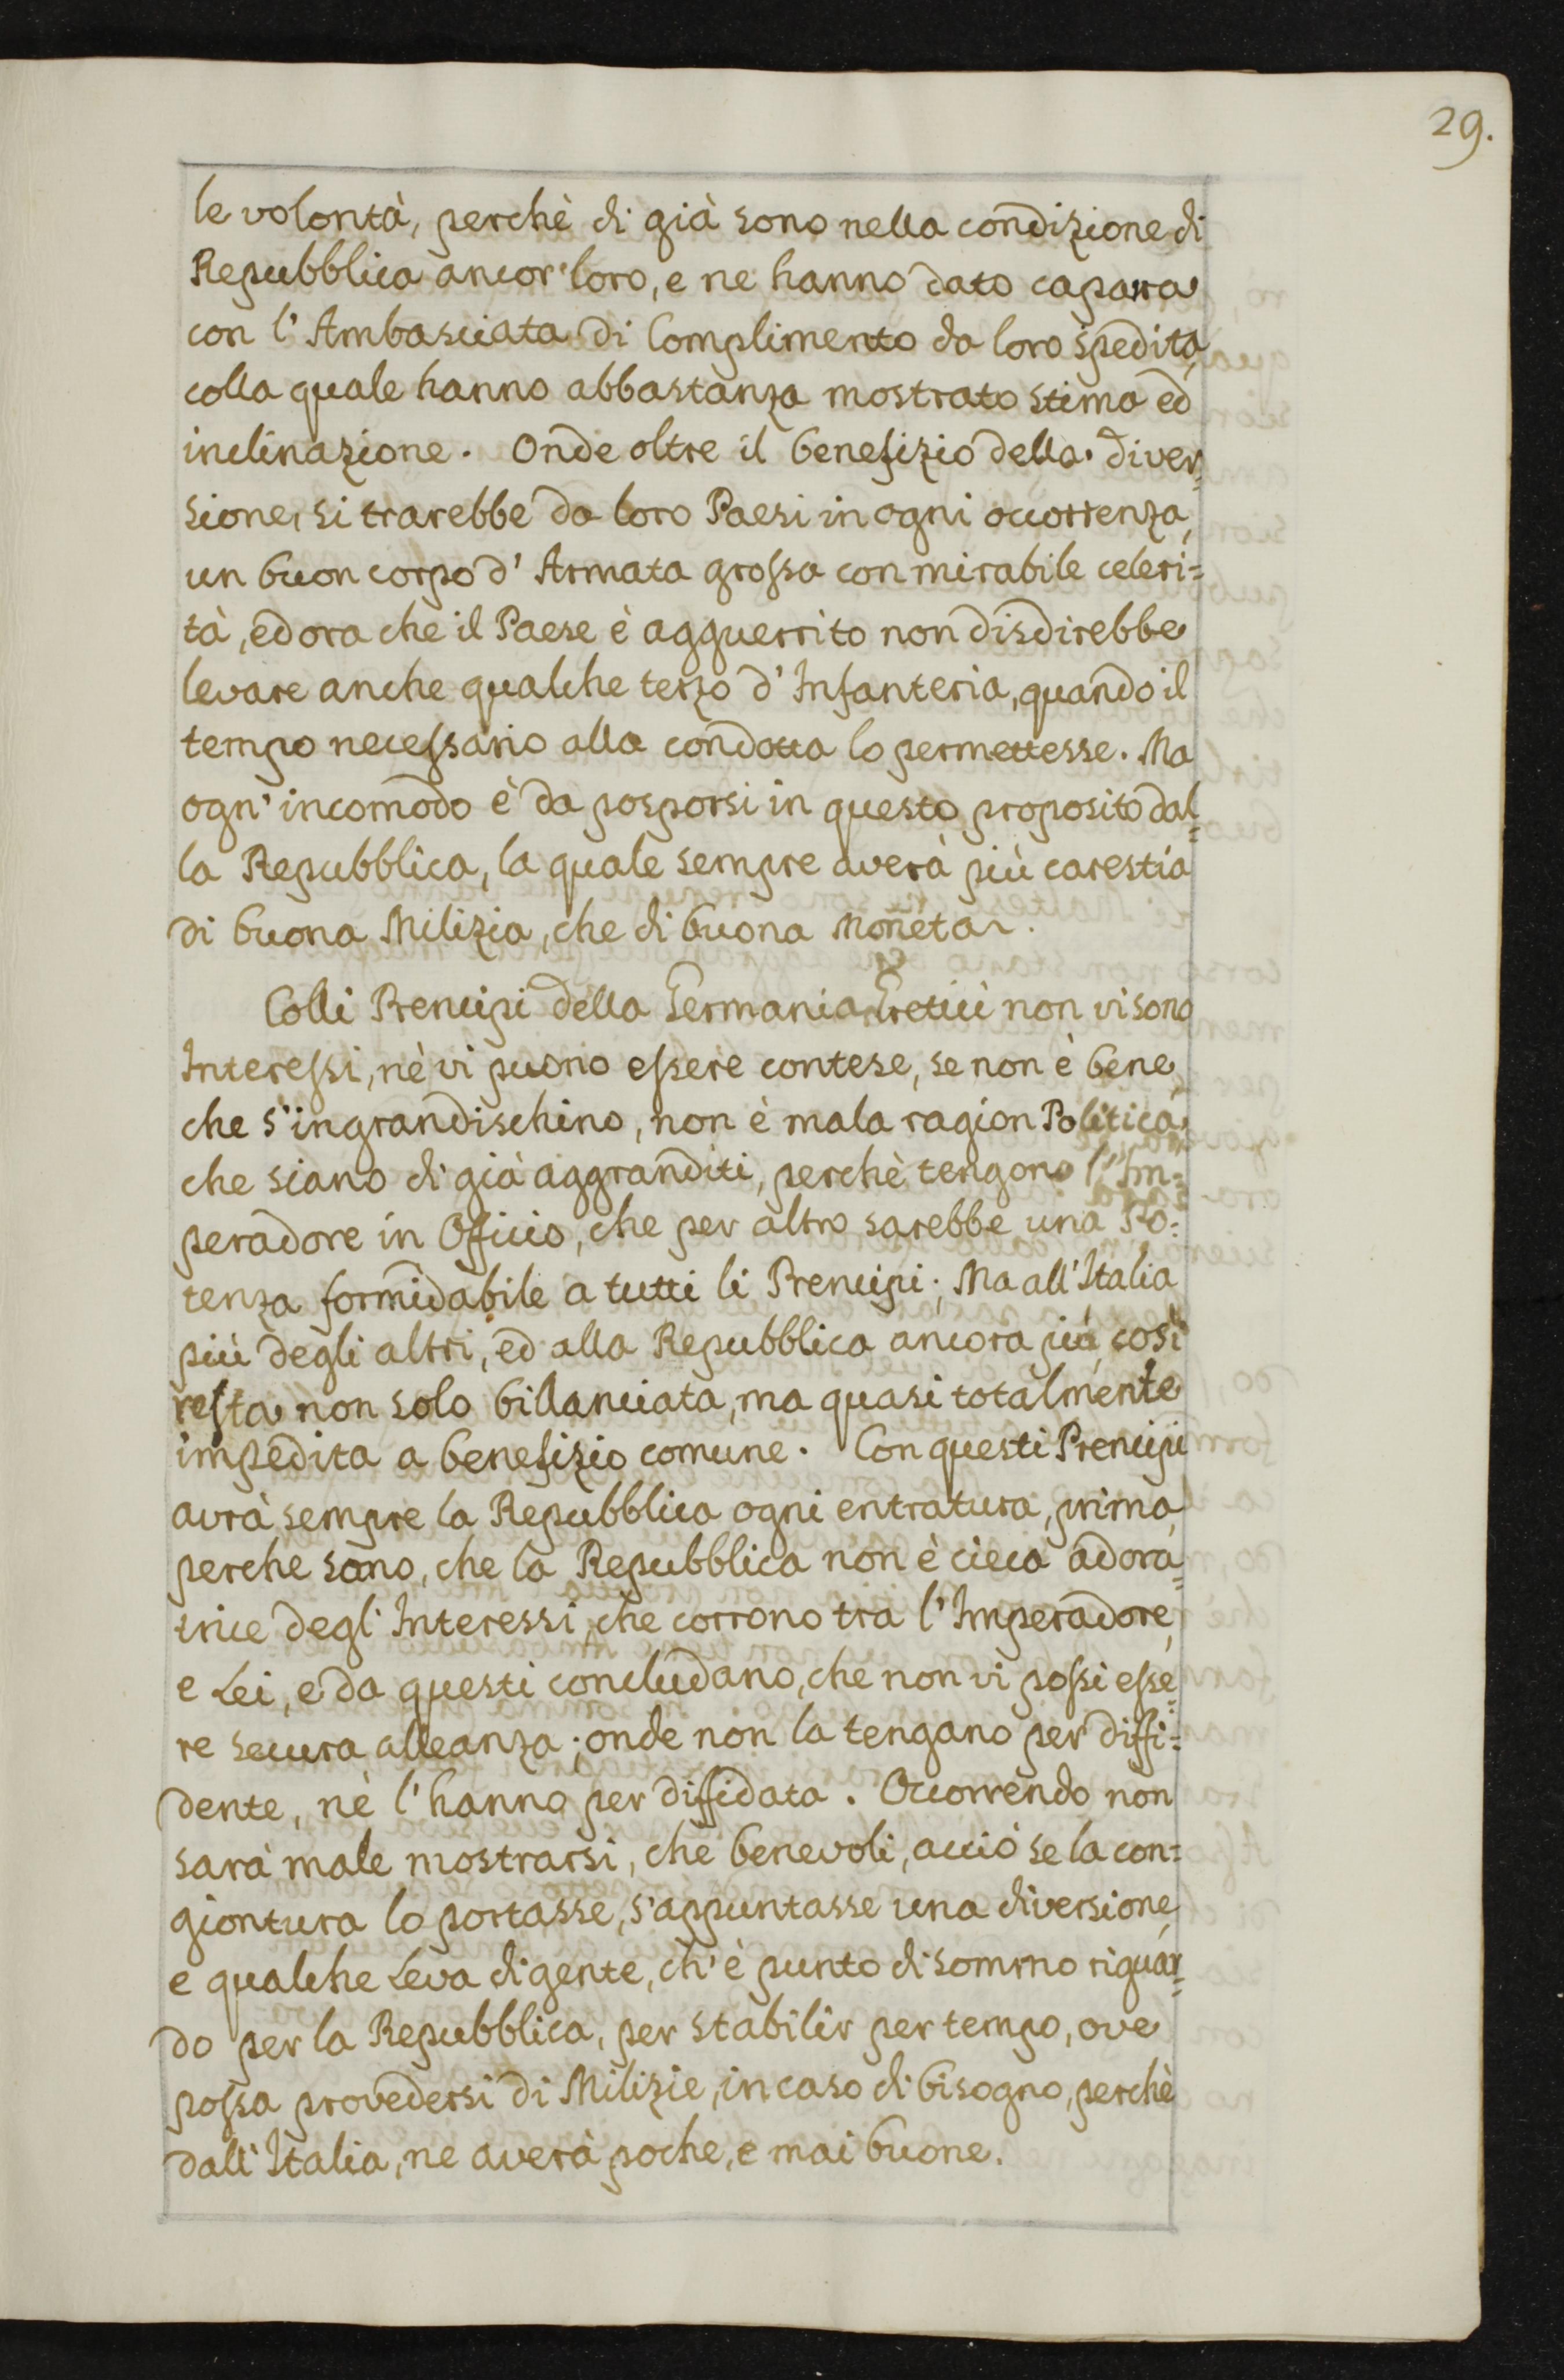 29.
le volontà, perchè di già sono nella condizione di
Repubblica ancor' loro, e ne hanno dato caparra
con l' Ambasciata di Complimento da loro spedita,
colla quale hanno abbastanza mostrato stima ed
inclinazione. Onde oltre il benefizio della diver=
sione, si trarebbe da loro Paesi in ogni occorrenza,
un buon corpo d' Armata grossa con mirabile celeri=
tà, ed ora che il Paese è agguerrito non disdirebbe
levare anche qualche terzo d' Infanteria, quando il
tempo necessario alla condotta lo permettesse. Ma
ogn' incomodo è da posporsi in questo proposito dal=
la Repubblica, la quale sempre averà più carestia
di buona Milizia, che di buona Moneta.
Colli Prencipi della Germania Eretici non vi sono
Interessi, nè vi puono essere contese, se non è bene
che s'ingrandischino, non è mala ragion Politica,
che siano di già aggranditi, perchè tengono l' Im=
peradore in Officio, che per altro sarebbe una Po=
tenza formidabile a tutti li Prencipi; Ma all' Italia
più degli altri, ed alla Repubblica ancora più, così
resta non solo billanciata, ma quasi totalmente
impedita a benefizio comune. Con questi Prencipi
avrà sempre la Repubblica ogni entratura, prima,
perche sano, che la Repubblica non è cieca adora=
trice degl' Interessi, che corrono tra l' Imperadore,
e Lei, e da questi concludano, che non vi possi esse=
re secura alleanza; onde non la tengano per diffi=
dente, nè l' hanno per diffidata. Occorrendo non
sarà male mostrarsi, che benevoli, acciò se la con=
giontura lo portasse, s'appuntasse una diversione,
e qualche Leva di gente, ch' è punto di sommo riguar=
do per la Repubblica, per stabilir per tempo, ove
possa provedersi di Milizie, in caso di bisogno, perchè
dall' Italia, ne averà poche, e mai buone.